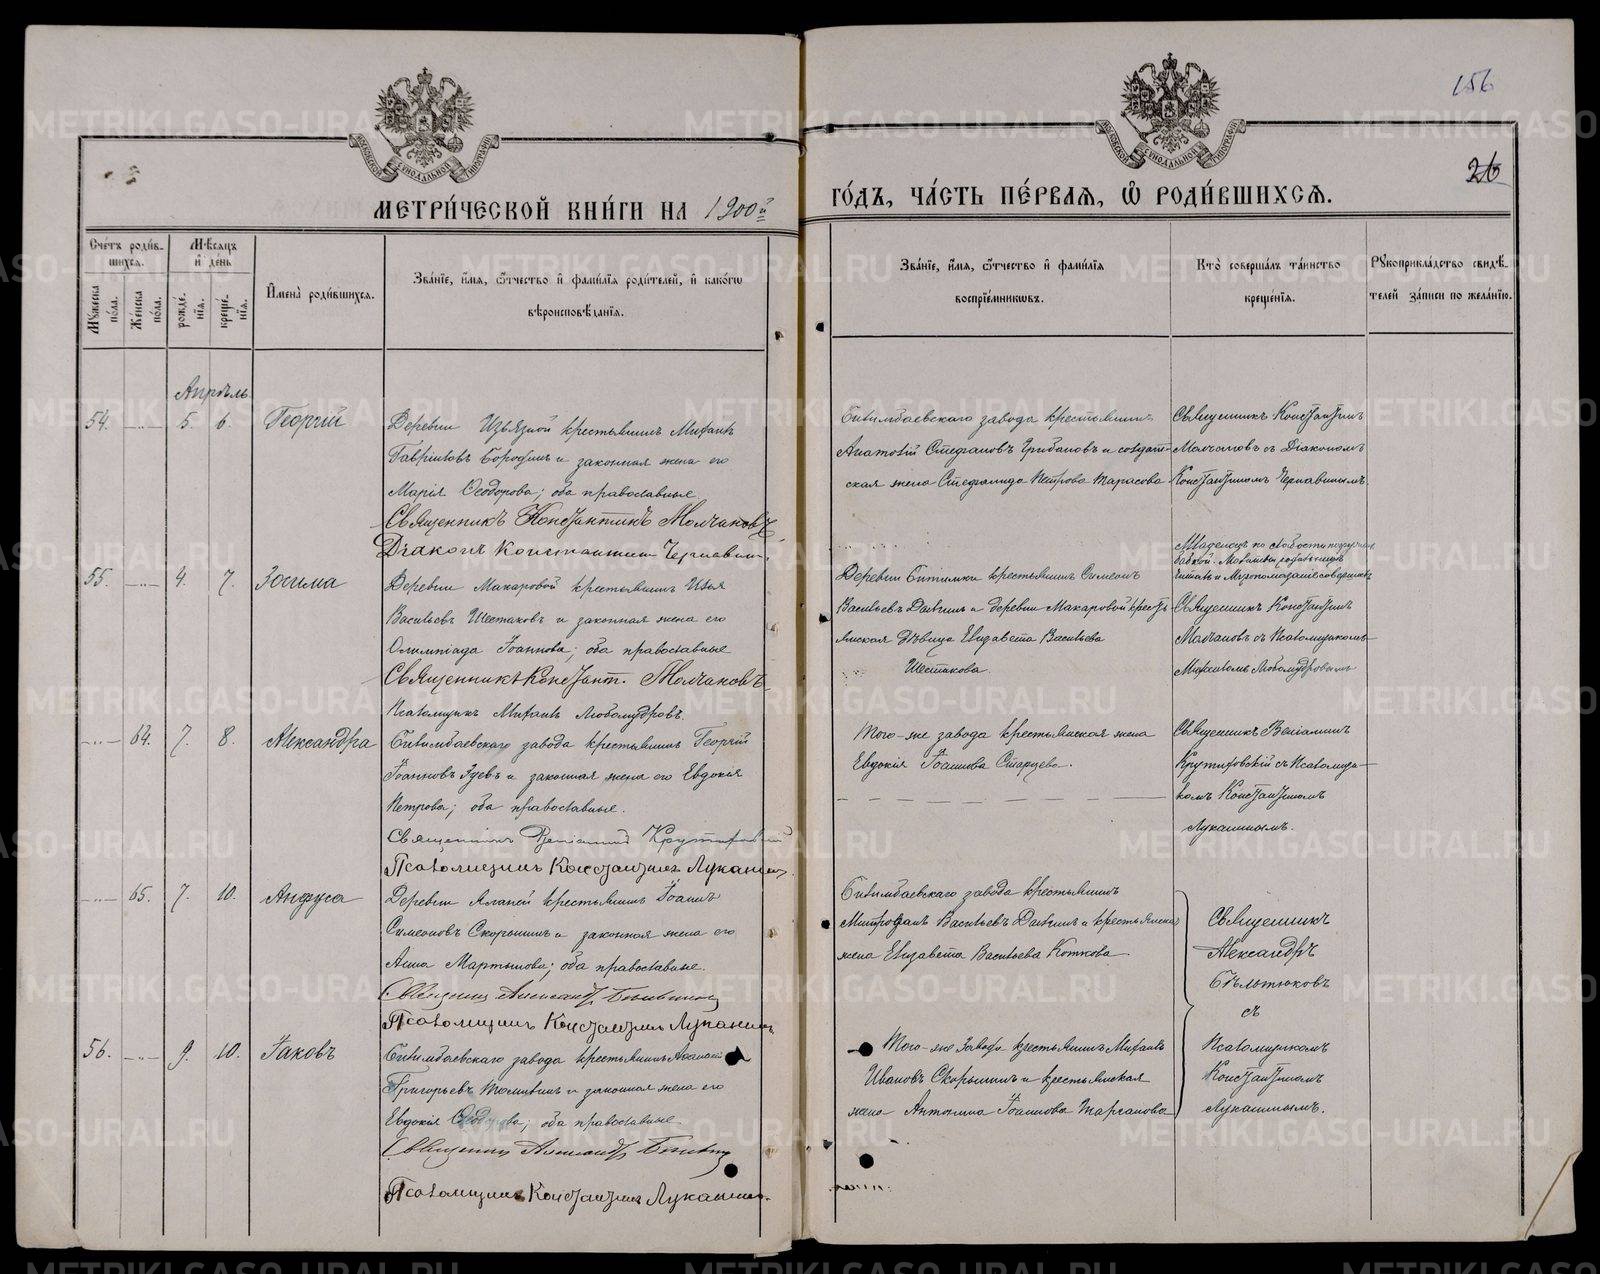 156
26
МЕТРИ́ЧЕСКОЙ КНИ́ГИ НА 1900й
ГО́ДЪ, ЧА́СТЬ ПЕ́РВАѦ, Ѡ҆ РОДИ́ВШИХСѦ.
Сче́тъ роди́в-
шихсѧ.
Мꙋ́жеска по́ла.
Же́нска по́ла.
Мѣ́сѧцъ
и҆ де́нь
рожде́-
нїѧ.
креще́-
нїѧ.
И҆мена̀ роди́вшихсѧ.
Зва́нїе, и҆́мѧ, ѻ҆́тчество и҆ фами́лїѧ роди́телей, и҆ како́гѡ
вѣроисповѣ́данїѧ.
Зва́нїе, и҆́мѧ, ѻ҆́тчество и҆ фами́лїѧ
воспрїе́мникѡвъ.
Кто̀ соверша́лъ та́инство
креще́нїѧ.
Рꙋкоприкла́дство свидѣ́-
телей за́писи по жела́нїю.
Апрѣль
54. 5. 6. Георгій
Деревни Извязной крестьянинъ Михаилъ
Гавриловъ Бородинъ и законная жена его
Марія Ѳеодорова; оба православные.
Священникъ Константинъ Молчановъ
Діаконъ Константинъ Чернавинъ
Билимбаевскаго завода крестьянинъ
Анатолій Стефановъ Грибановъ и солдат-
ская жена Стефанида Петрова Тарасова
Священникъ Константинъ
Молчановъ съ Діакономъ
Константиномъ Чернавинымъ
55. 4. 7. Зосима
Деревни Макаровой крестьянинъ Илья
Васильевъ Шестаковъ и законная жена его
Олимпіада Іоаннова; оба православные
Священникъ Констант. Молчановъ
Псаломщикъ Михаилъ Любомудровъ.
Деревни Битимки крестьянинъ Симеонъ
Васильевъ Далинъ и деревни Макаровой кресть-
янская дѣвица Елизавета Васильева
Шестакова.
Младенецъ по слабости погруженъ
бабкой. Молитвы родильницѣ
читалъ и Муропомазаніе совершилъ
Священникъ Константинъ
Молчановъ съ Псаломщикомъ
Михаиломъ Любомудровымъ
64. 7. 8. Александра
Билимбаевскаго завода крестьянинъ Георгій
Іоанновъ Зуевъ и законная жена его Евдокія
Петрова; оба православные.
Священникъ Веніаминъ Крутиховскій
Псаломщикъ Константинъ Луканинъ
Того-же завода крестьянская жена
Евдокія Іоаннова Старцева.
Священникъ Веніаминъ
Крутиховскій съ Псаломщи-
комъ Константиномъ
Луканинымъ.
65. 7. 10. Анфуса
Деревни Аланей крестьянинъ Іоаннъ
Симеоновъ Скорынинъ и законная жена его
Анна Мартынова; оба православные.
Священникъ Александръ Бѣльтюковъ
Псаломщикъ Константинъ Луканинъ
Билимбаевскаго завода крестьянинъ
Митрофанъ Васильевъ Далинъ и крестьянская
жена Елизавета Васильева Коткова
Священникъ
Александръ
Бѣльтюковъ
съ
Псаломщикомъ
Константиномъ
Луканинымъ.
56. 9. 10. Іаковъ
Билимбаевскаго завода крестьянинъ Аѳанасій
Григорьевъ Томилинъ и законная жена его
Евдокія Ѳеодорова; оба православные
Священникъ Александръ Бѣльтюковъ
Псаломщикъ Константинъ Луканинъ.
Того-же завода крестьянинъ Михаилъ
Ивановъ Скорынинъ и крестьянская
жена Антонина Іоаннова Тарханова
METRIKI.GASO-URAL.RU